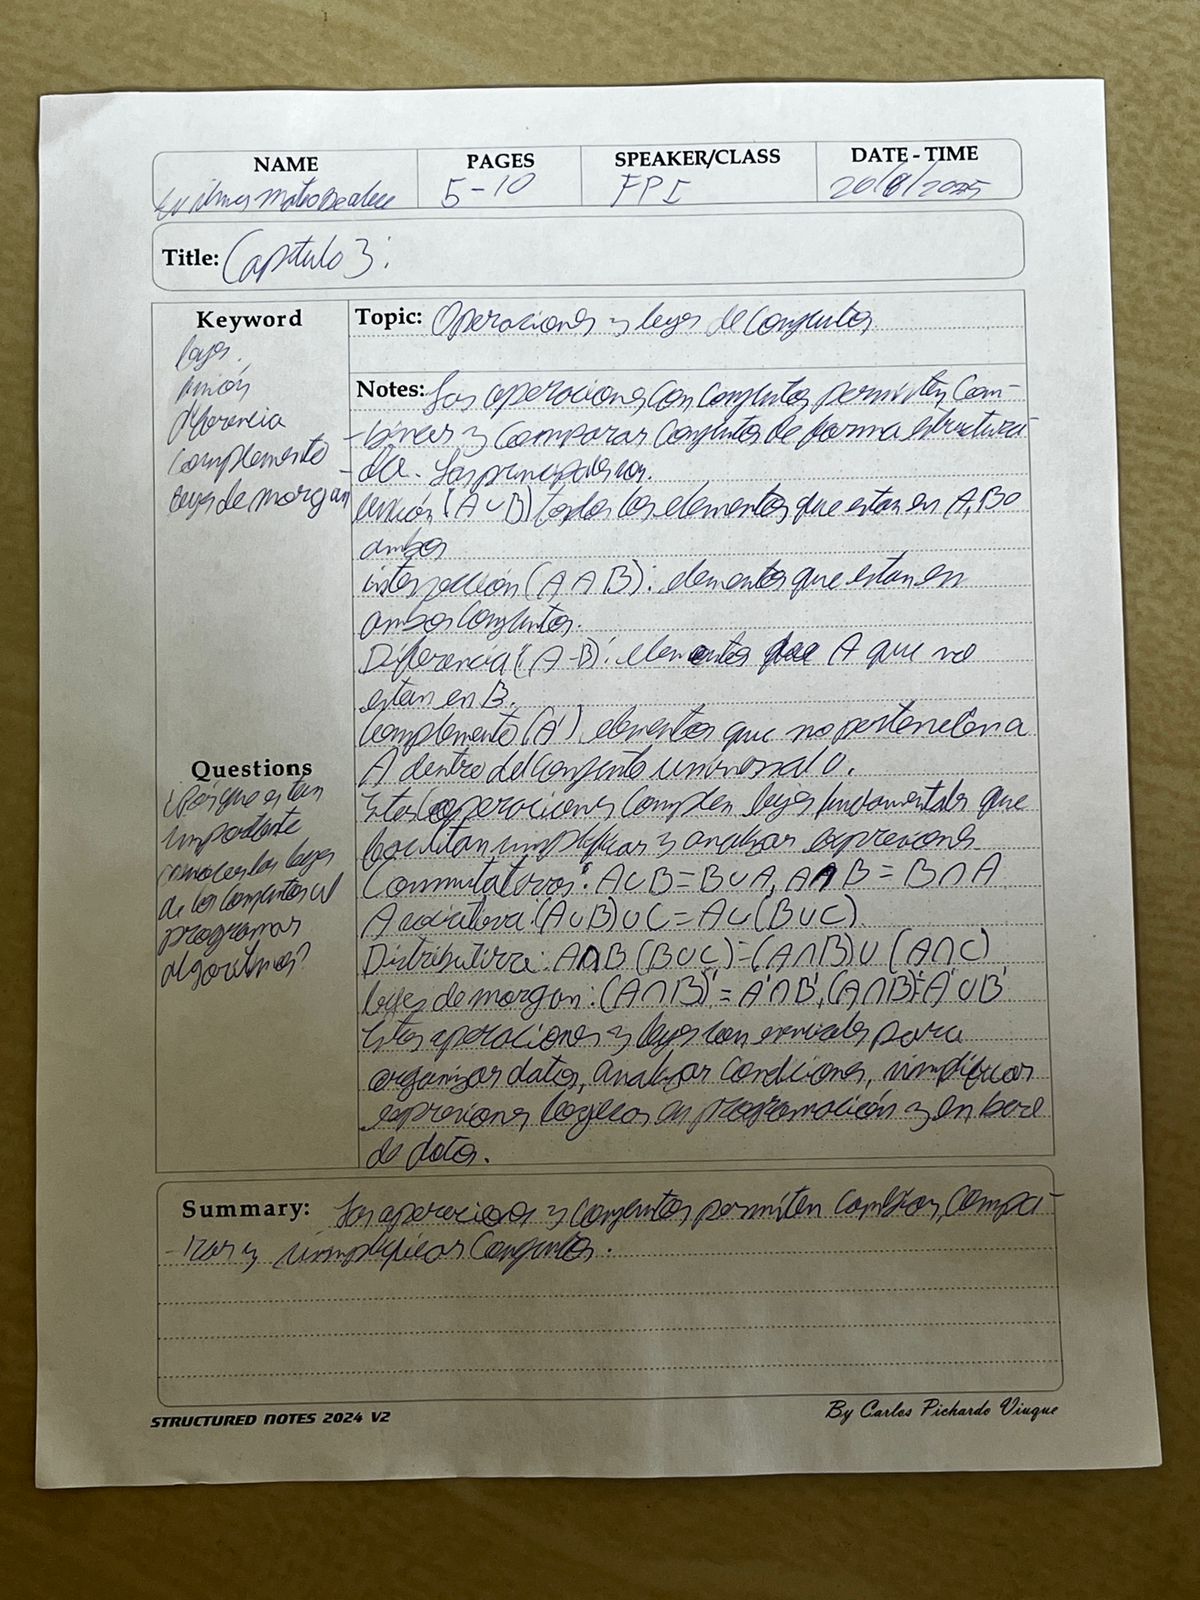 NAME PAGES SPEAKER/CLASS DATE - TIME
5-10 FPI 20/8/2025
Title: Capitulo 3:
Keyword
leyes.
unión
diferencia
complemento
leyes de morgan
Questions
¿Por que es tan
importante
conocer las leyes
de los conjuntos al
programar
algoritmos?
Topic: Operaciones y leyes de conjuntos
Notes: Las operaciones con conjuntos permiten com-
-binar y comparar conjuntos de forma estructura-
-da. Las principales son.
unión (A∪B) todos los elementos que estan en A, B o
ambos
intersección (A∩B): elementos que estan en
ambos conjuntos.
Diferencia (A-B): elementos de A que no
estan en B.
Complemento (A') elementos que no pertenecen a
A dentro del conjunto universal U.
Estas operaciones cumplen leyes fundamentales que
facilitan simplificar y analizar expresiones
Conmutativas: A∪B=B∪A, A∩B=B∩A
Asociativa: (A∪B)∪C=A∪(B∪C)
Distributiva: A∩B (B∪C)=(A∩B)∪(A∩C)
leyes de morgan: (A∩B)'=A'∩B', (A∩B)'=A'∪B'
Estas operaciones y leyes son esenciales para
organizar datos, analizar condiciones, simplificar
expresiones logicas en programación y en base
de datos.
Summary: Las operaciones y conjuntos permiten combinar, compa-
-rar y simplificar conjuntos.
STRUCTURED NOTES 2024 V2
By Carlos Pichardo Viuque